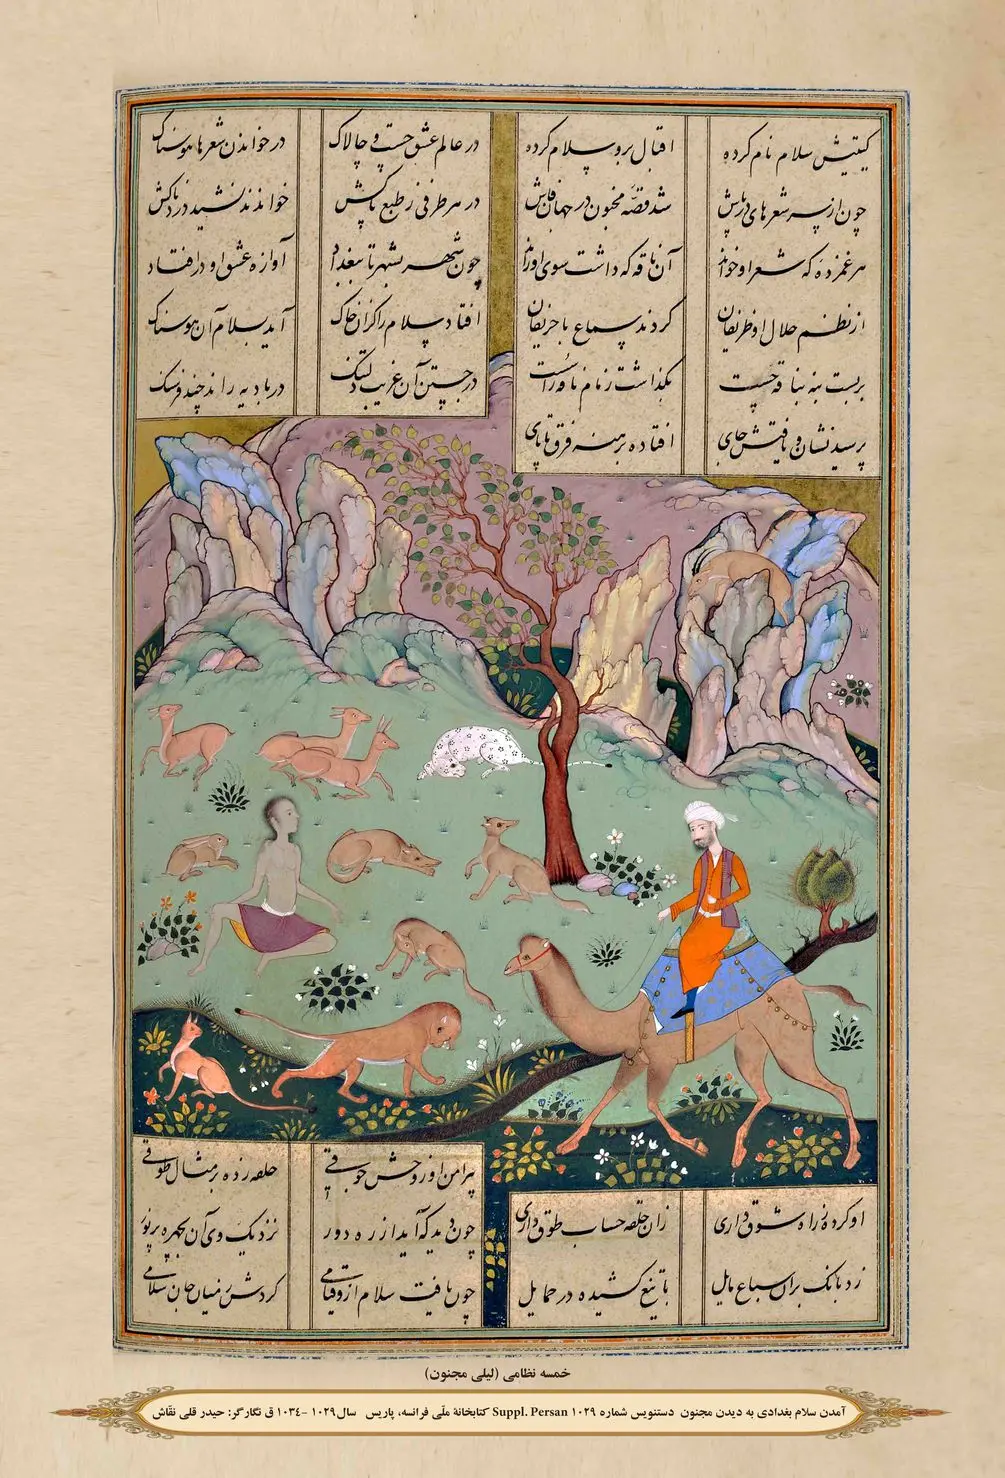 کیتیش سلام نام کرده اقبال برو سلام کرده در عالم عشق چست و چالاک در خواندن شعرها هوسناک
چون از شعرهای در پاش شد قصه مجنون در جهان فاش در هر طرفی ز طبع پاکش خواندند نشید دردناکش
هر غمزده که شعر او خواند آن ناقه که داشت سوی او راند چون شهر بشهر تا ببغداد آوازه عشق او در افتاد
از نظم حلال او ظریفان کردند سماع با حریفان افتاد سلام را کزان خاک آید بسلام آن هوسناک
بربست بنه بناقه چست بگذاشت زمام ناقه را سست در جستن آن غریب دلتنگ در بادیه راند چند فرسنگ
پرسید نشان و یافتش جای افتاده برهنه فرق تا پای
پیرامن او ز وحش جوقی حلقه زده بر مثال طوقی
او کرده ز راه شوق داری زان حلقه حساب طوق داری چون دید که آید از ره دور نزدیک وی آن بچهره پرنور
زد بانک بران سباع مایل با تیغ کشیده در حمایل چون یافت سلام ازو قیامی کردش ز میان جان سلامی
خمسه نظامی (لیلی مجنون)
آمدن سلام بغدادی به دیدن مجنون دستنویس شماره ۱۰۲۹ Suppl. Persan کتابخانهٔ ملّی فرانسه، پاریس سال ۱۰۲۹-۱۰۳۴ ق نگارگر: حیدر قلی نقّاش